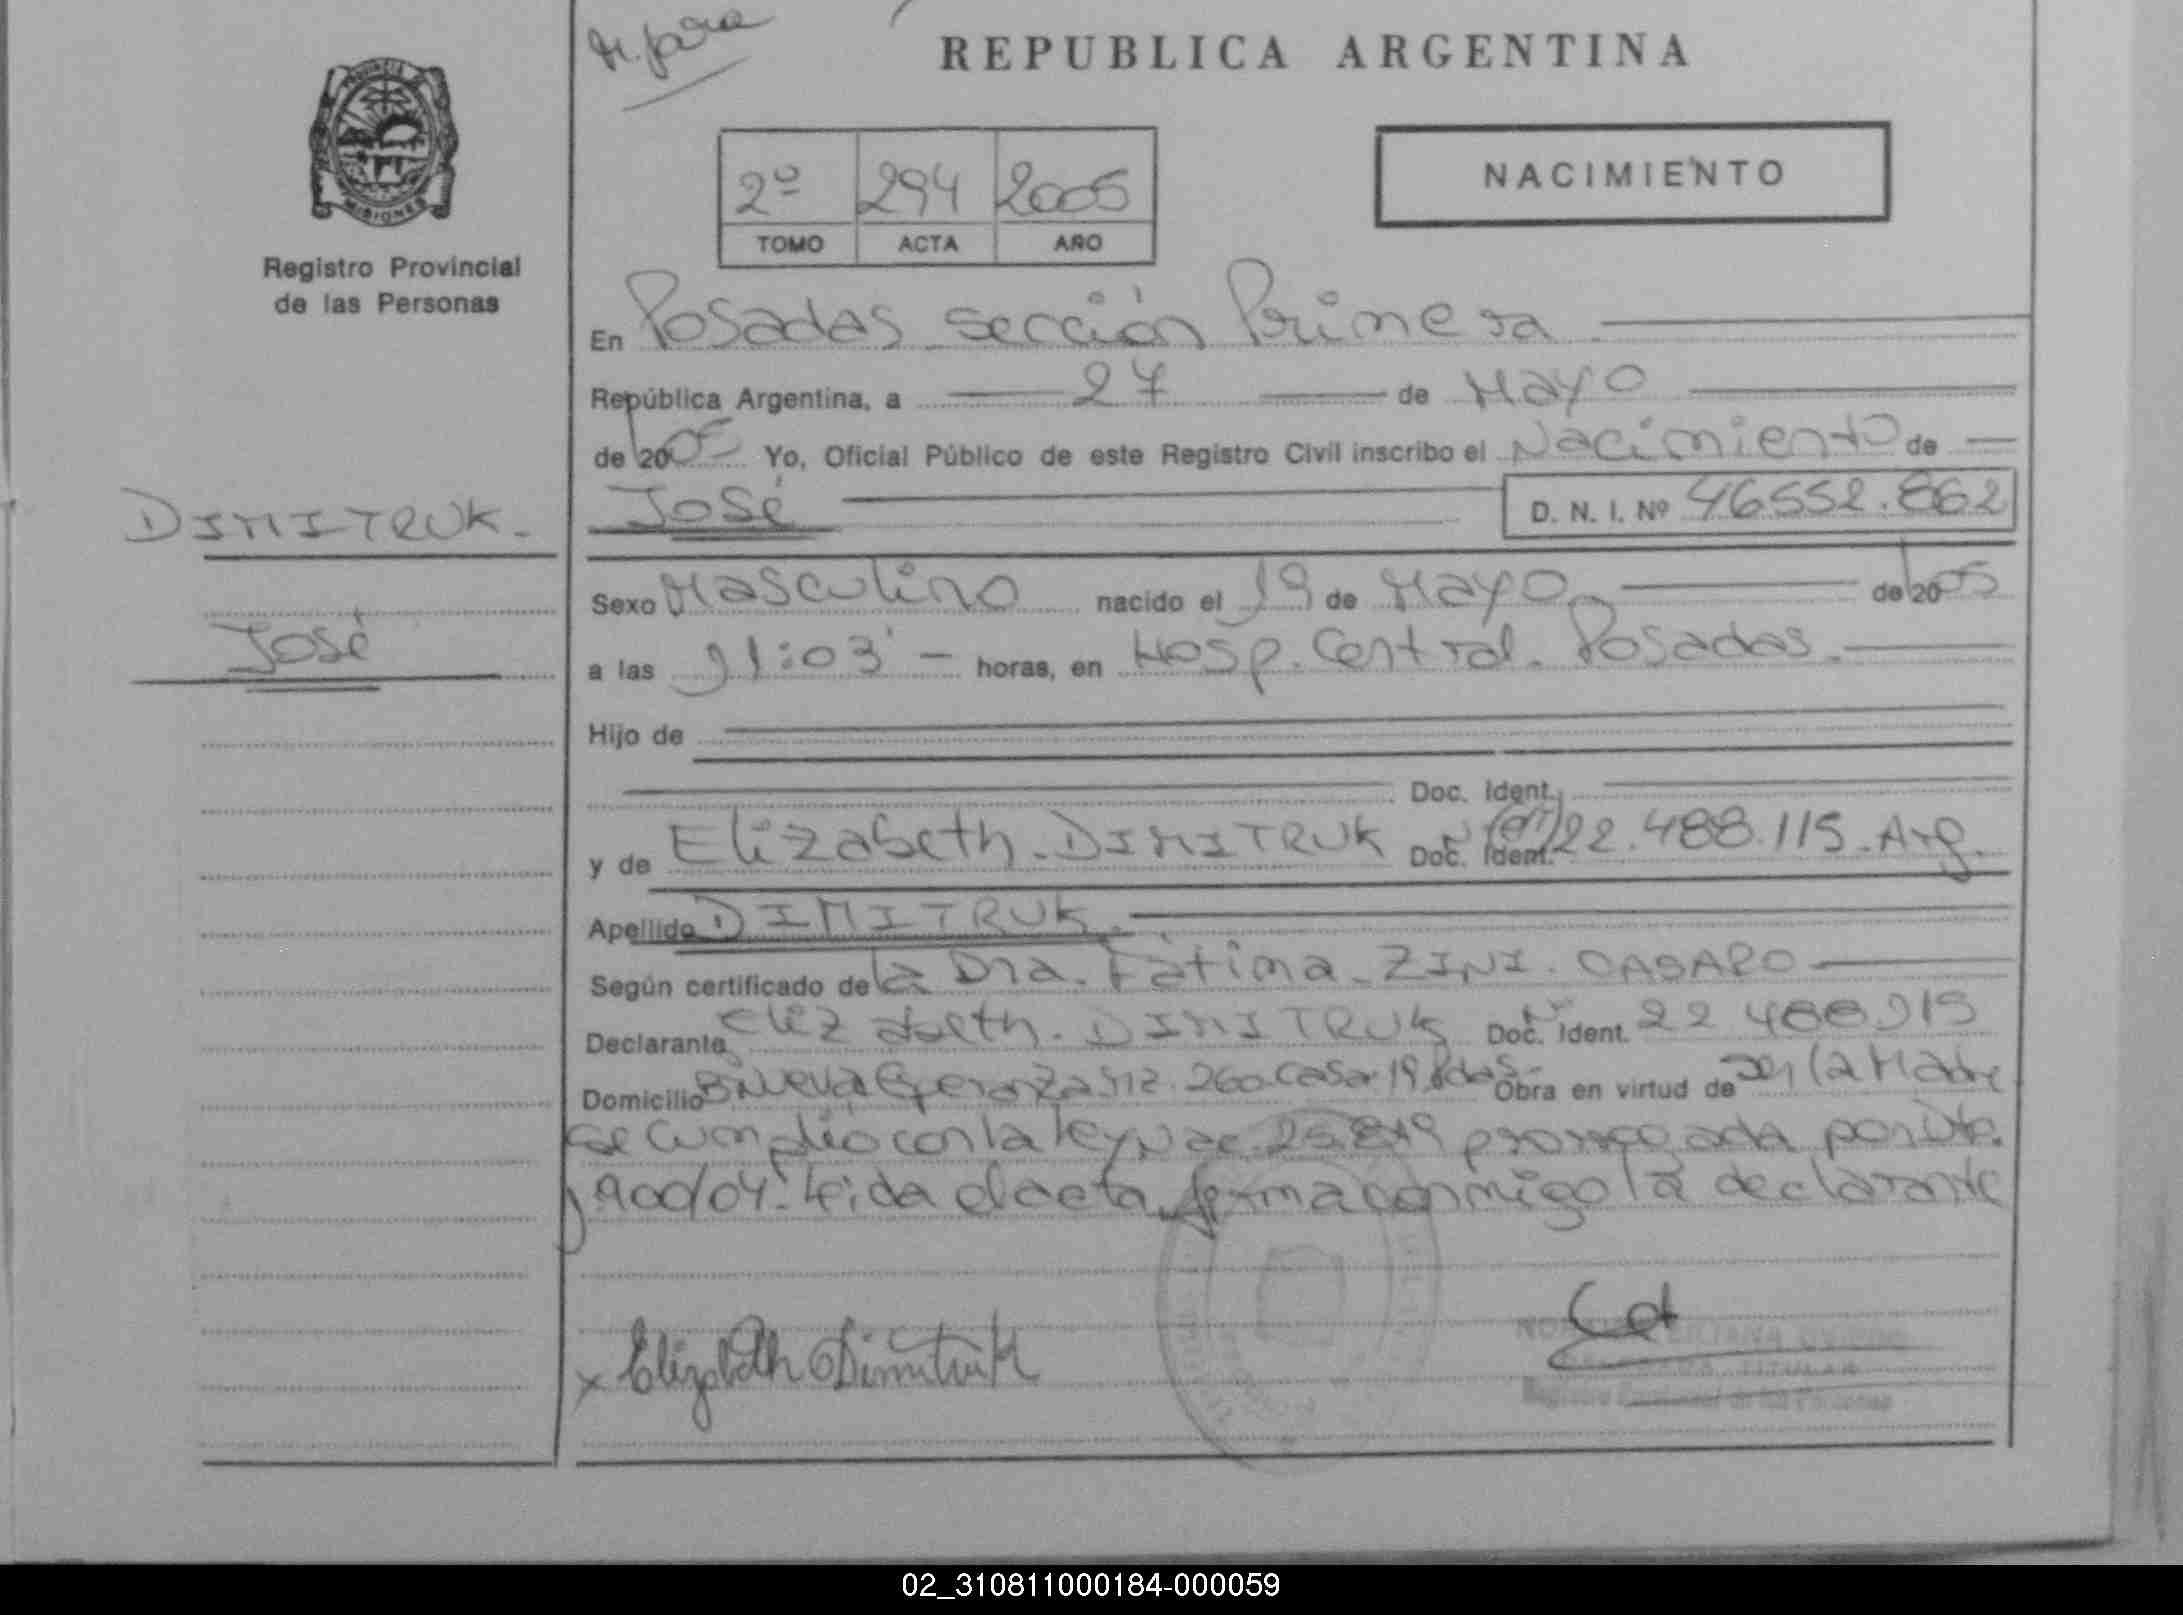 REPUBLICA ARGENTINA
PROVINCIA DE
MISIONES
Registro Provincial
de las Personas
2º 294 2005
TOMO ACTA AÑO
NACIMIENTO
En Posadas sección Primera
República Argentina, a 27 de Mayo
de 2005 Yo, Oficial Público de este Registro Civil inscribo el Nacimiento de
DIMITRUK.
José
José D. N. I. Nº 46552.862
Sexo Masculino nacido el 19 de Mayo de 2005
a las 11:03 horas, en Hosp. Central. Posadas.
Hijo de
Doc. Ident.
y de Elizabeth. DIMITRUK Doc. Ident. 22.488.115. Arg.
Apellido DIMITRUK.
Según certificado de la Dra. Fátima. ZINI.
Declarante Elizabeth. DIMITRUK Doc. Ident. 22 488 115
Domicilio Bº Nueva Esperanza Mz. 260. Casa. 19 Pdas. Obra en virtud de ser la Madre
se cumplió con la ley 25.819 prorrogada por Dto.
1900/04. Leida el acta, firma conmigo la declarante
x Elizabeth Dimitruk
TITULAR
Registro Provincial de las Personas
02_310811000184-000059